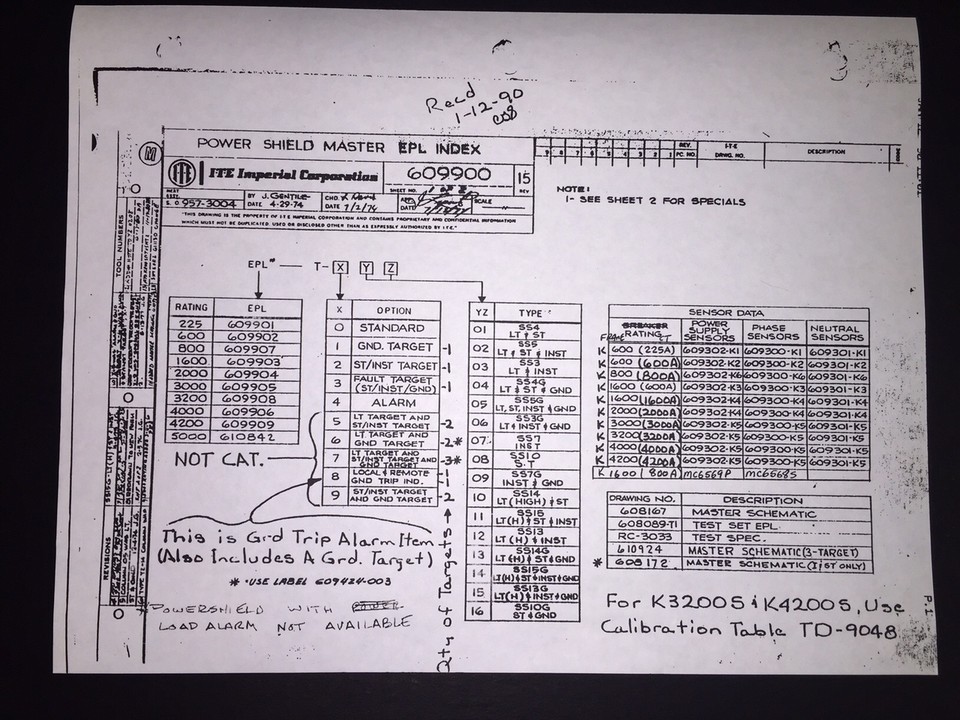 Recd
1-12-90
POWER SHIELD MASTER EPL INDEX
ITE ITE Imperial Corporation
609900
15
REV
SHEET NO. 1 OF 2
S.O. 957-3004
BY J. GENTILE
DATE 4-29-74
CHD.
DATE 7/2/74
APP.
DATE
SCALE
"THIS DRAWING IS THE PROPERTY OF I.T.E. IMPERIAL CORPORATION AND CONTAINS PROPRIETARY AND CONFIDENTIAL INFORMATION
WHICH MUST NOT BE DUPLICATED, USED OR DISCLOSED OTHER THAN AS EXPRESSLY AUTHORIZED BY I.T.E."
9 8 7 6 5 4 3 2 1
REV.
PC. NO.
I-T-E
DRWG. NO.
DESCRIPTION
NOTE:
1- SEE SHEET 2 FOR SPECIALS
TOOL NUMBERS
REVISIONS
EPL* — T- X Y Z
RATING EPL
225 609901
600 609902
800 609907
1600 609903
2000 609904
3000 609905
3200 609908
4000 609906
4200 609909
5000 610842
X OPTION
0 STANDARD
1 GND. TARGET -1
2 ST/INST TARGET -1
3 FAULT TARGET (ST/INST/GND) -1
4 ALARM
5 LT TARGET AND ST/INST TARGET -2
6 LT TARGET AND GND TARGET -2*
7 LT TARGET AND ST/INST TARGET AND GND TARGET -3*
8 LOCAL & REMOTE GND TRIP IND. -1
9 ST/INST TARGET AND GND TARGET -2
NOT CAT.
This is Grd Trip Alarm Item
(Also Includes A Grd. Target)
* -USE LABEL 609424-003
*POWERSHIELD WITH
LOAD ALARM NOT AVAILABLE
Qty of Targets →
YZ TYPE
01 SS4 LT & ST
02 SS5 LT & ST & INST
03 SS3 LT & INST
04 SS4G LT & ST & GND
05 SS5G LT, ST, INST & GND
06 SS3G LT & INST & GND
07 SS7 INST
08 SS10 S.T
09 SS7G INST & GND
10 SS14 LT (HIGH) & ST
11 SS15 LT(H) & ST & INST
12 SS13 LT(H) & INST
13 SS14G LT(H) & ST & GND
14 SS15G LT(H) & ST & INST & GND
15 SS13G LT(H) & INST & GND
16 SS10G ST & GND
SENSOR DATA
FRAME BREAKER RATING CT
POWER SUPPLY SENSORS
PHASE SENSORS
NEUTRAL SENSORS
K 600 (225A) 609302-K1 609300-K1 609301-K1
K 600 (600A) 609302-K2 609300-K2 609301-K2
K 800 (800A) 609302-K6 609300-K6 609301-K6
K 1600 (600A) 609302-K3 609300-K3 609301-K3
K 1600 (1600A) 609302-K4 609300-K4 609301-K4
K 2000 (2000A) 609302-K4 609300-K4 609301-K4
K 3000 (3000A) 609302-K5 609300-K5 609301-K5
K 3200 (3200A) 609302-K5 609300-K5 609301-K5
K 4000 (4000A) 609302-K5 609300-K5 609301-K5
K 4200 (4200A) 609302-K5 609300-K5 609301-K5
K 1600 (800A) MC6569P MC6568S
DRAWING NO. DESCRIPTION
608167 MASTER SCHEMATIC
608089-T1 TEST SET EPL.
RC-3033 TEST SPEC.
610924 MASTER SCHEMATIC (3-TARGET)
* 608172 MASTER SCHEMATIC (I & ST ONLY)
For K3200S & K4200S, Use
Calibration Table TD-9048
P.1